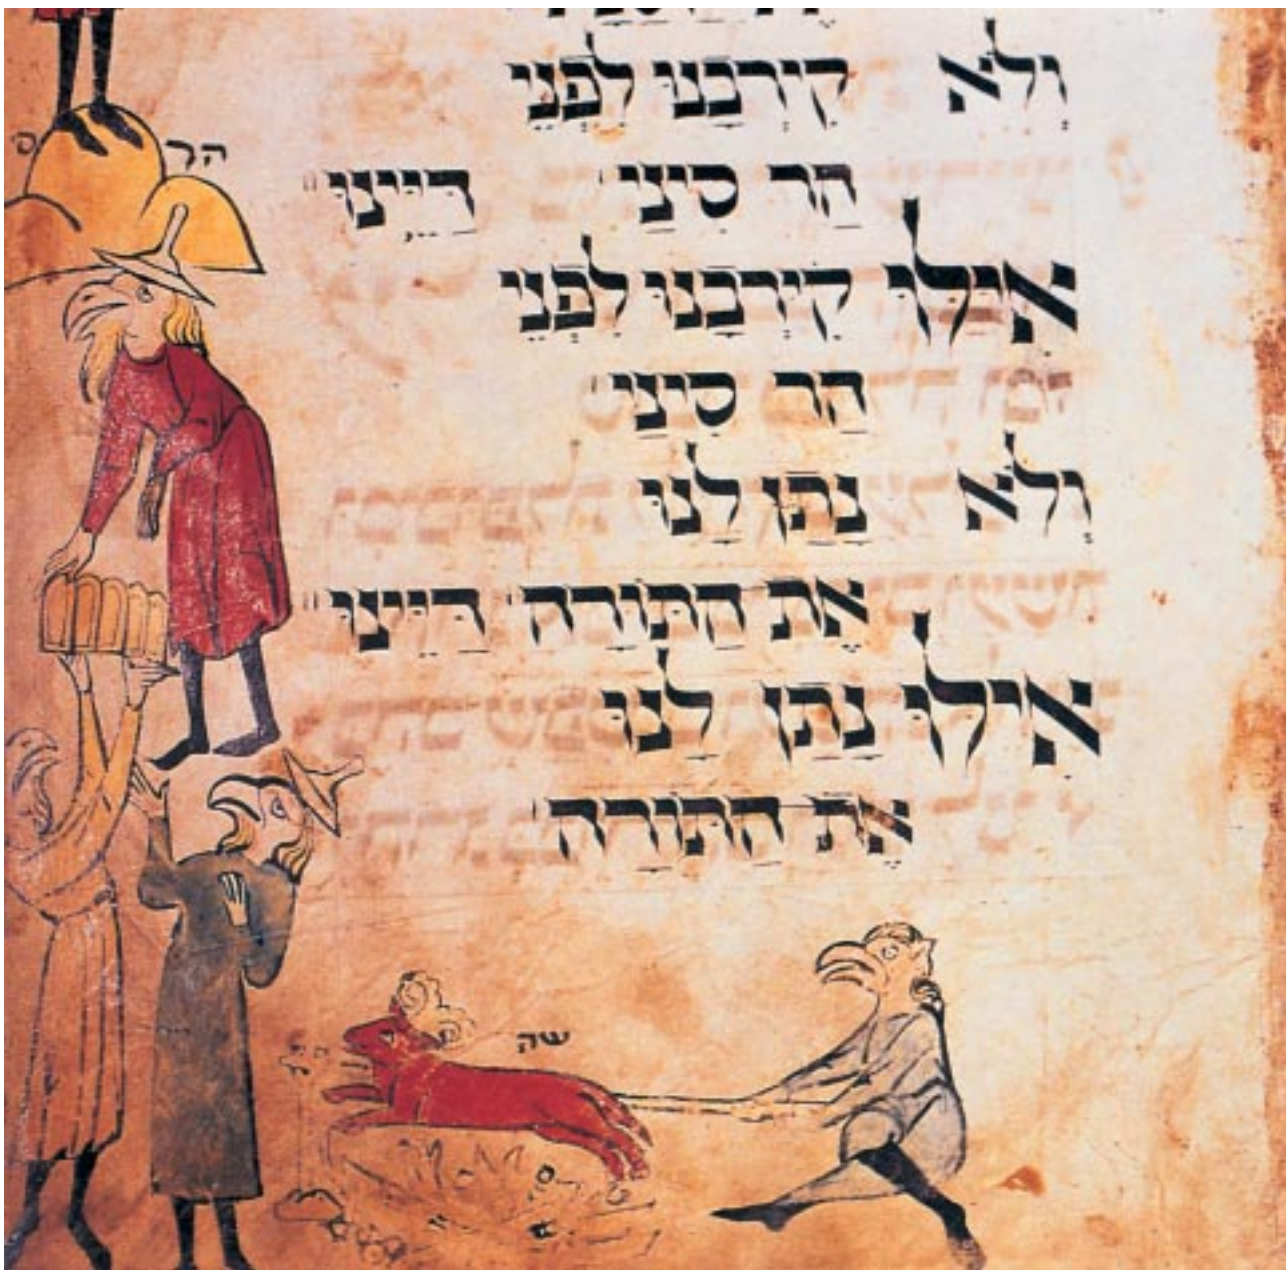 וְלֹא קֵירְבָנוּ לִפְנֵי
הַר סִינַי דַּיֵּינוּ
אִילּוּ קֵירְבָנוּ לִפְנֵי
הַר סִינַי
וְלֹא נָתַן לָנוּ
אֶת הַתּוֹרָה דַּיֵּינוּ
אִילּוּ נָתַן לָנוּ
אֶת הַתּוֹרָה
הר
שה